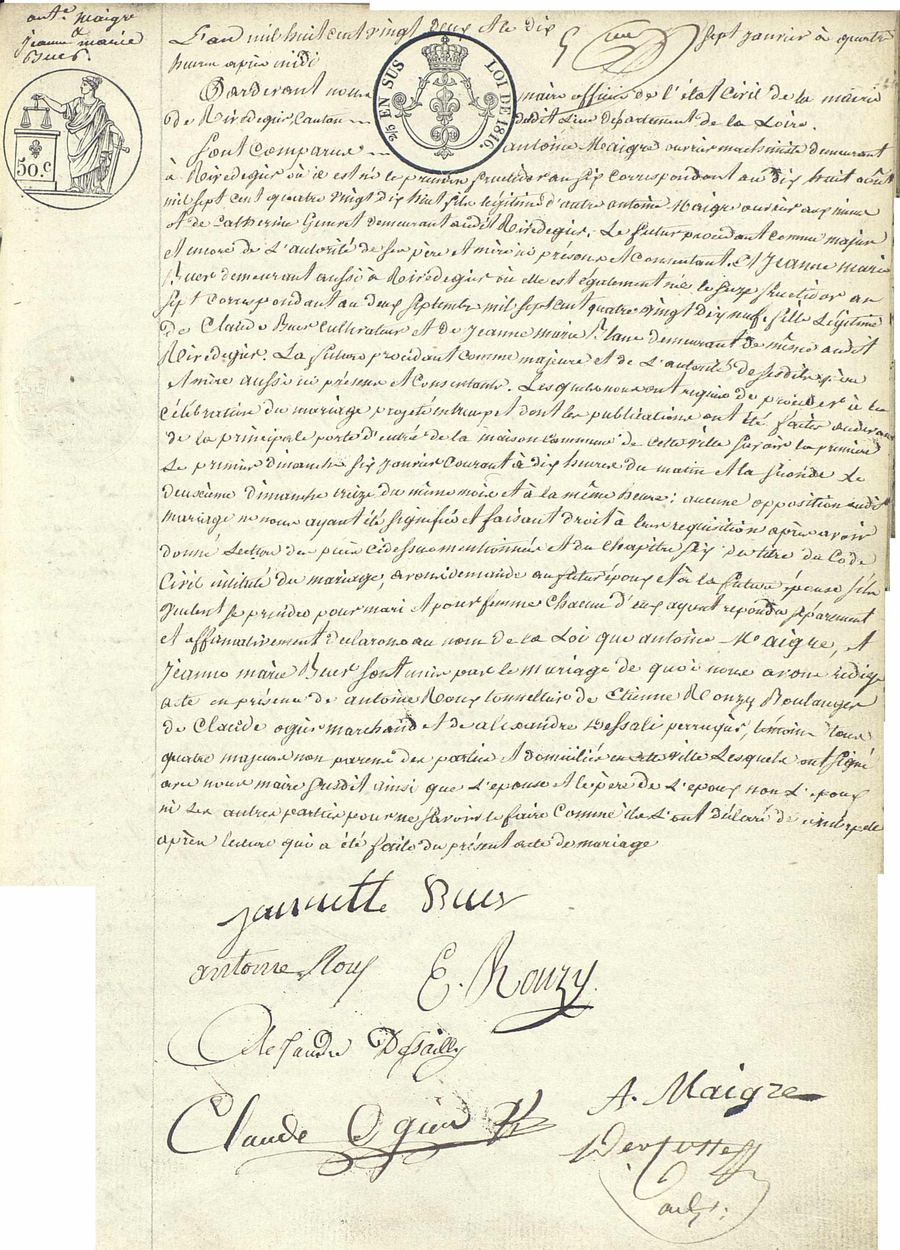 ant.e Maigre
&
jeanne marie
Buer.
50.c
25 EN SUS LOI DE 1816.
L'an mil huit cent vingt deux et le dix sept janvier à quatre
heures après midi
Pardevant nous maire officier de l'état Civil de la mairie
de Rivedegier, Canton dudit Lieu département de la Loire.
Sont Comparus antoine Maigre ouvrier machiniste demeurant
à Rivedegier où il est né le premier fructidor an six correspondant au dix huit août
mil sept cent quatre vingt dix huit fils légitime d'autre antoine Maigre ouvrier aux mines
et de Catherine demeurant audit Rivedegier. Le futur procédant comme majeur
et encore de L'autorité de ses père et mère ici présens et Consentant. Et Jeanne marie
Buer demeurant aussi à Rivedegier où elle est également née le seize fructidor an
sept correspondant au deux septembre mil sept cent quatre vingt dix neuf, fille Légitime
de Claude Buer Cultivateur et de Jeanne marie demeurant de même audit
Rivedegier. La future procédant comme majeure et de L'autorité de sesdits père
et mère aussi ici présens et Consentants. Lesquels nous ont requis de procéder à la
célébration du mariage projeté entr'eux et dont les publications ont été faites audevant
de la principale porte d'entrée de la maison commune de cette ville savoir la première
Le premier dimanche six janvier courant à dix heures du matin et la seconde Le
deuxième dimanche treize du même mois et à la même heure; aucune opposition audit
mariage ne nous ayant été signifiée et faisant droit à leur requisition après avoir
donné Lecture des pièces cidessus mentionnées et du chapitre six du titre du Code
Civil intitulé du mariage, avons demandé au futur époux et à la future épouse s'ils
veulent se prendre pour mari et pour femme chacun d'eux ayant répondu séparément
et affirmativement déclarons au nom de la Loi que antoine Maigre, et
Jeanne marie Buer sont unis par le mariage de quoi nous avons rédigé
acte en présence de antoine Roux tonnellier de Etienne Rouzy Boulanger
de Claude ogier marchand et de alexandre Dessali perruqier, témoins tous
quatre majeurs non parens des parties et domiciliés en cette ville Lesquels ont signé
avec nous maire susdit ainsi que L'épouse et le père de L'époux non L'époux
ni Les autres parties pour ne savoir le faire comme ils L'ont déclaré de
après lecture qui a été faite du présent acte de mariage
jannette Buer
antoine Roux E. Rouzy.
Alexandre Dessailly
A. Maigre
Claude Ogier